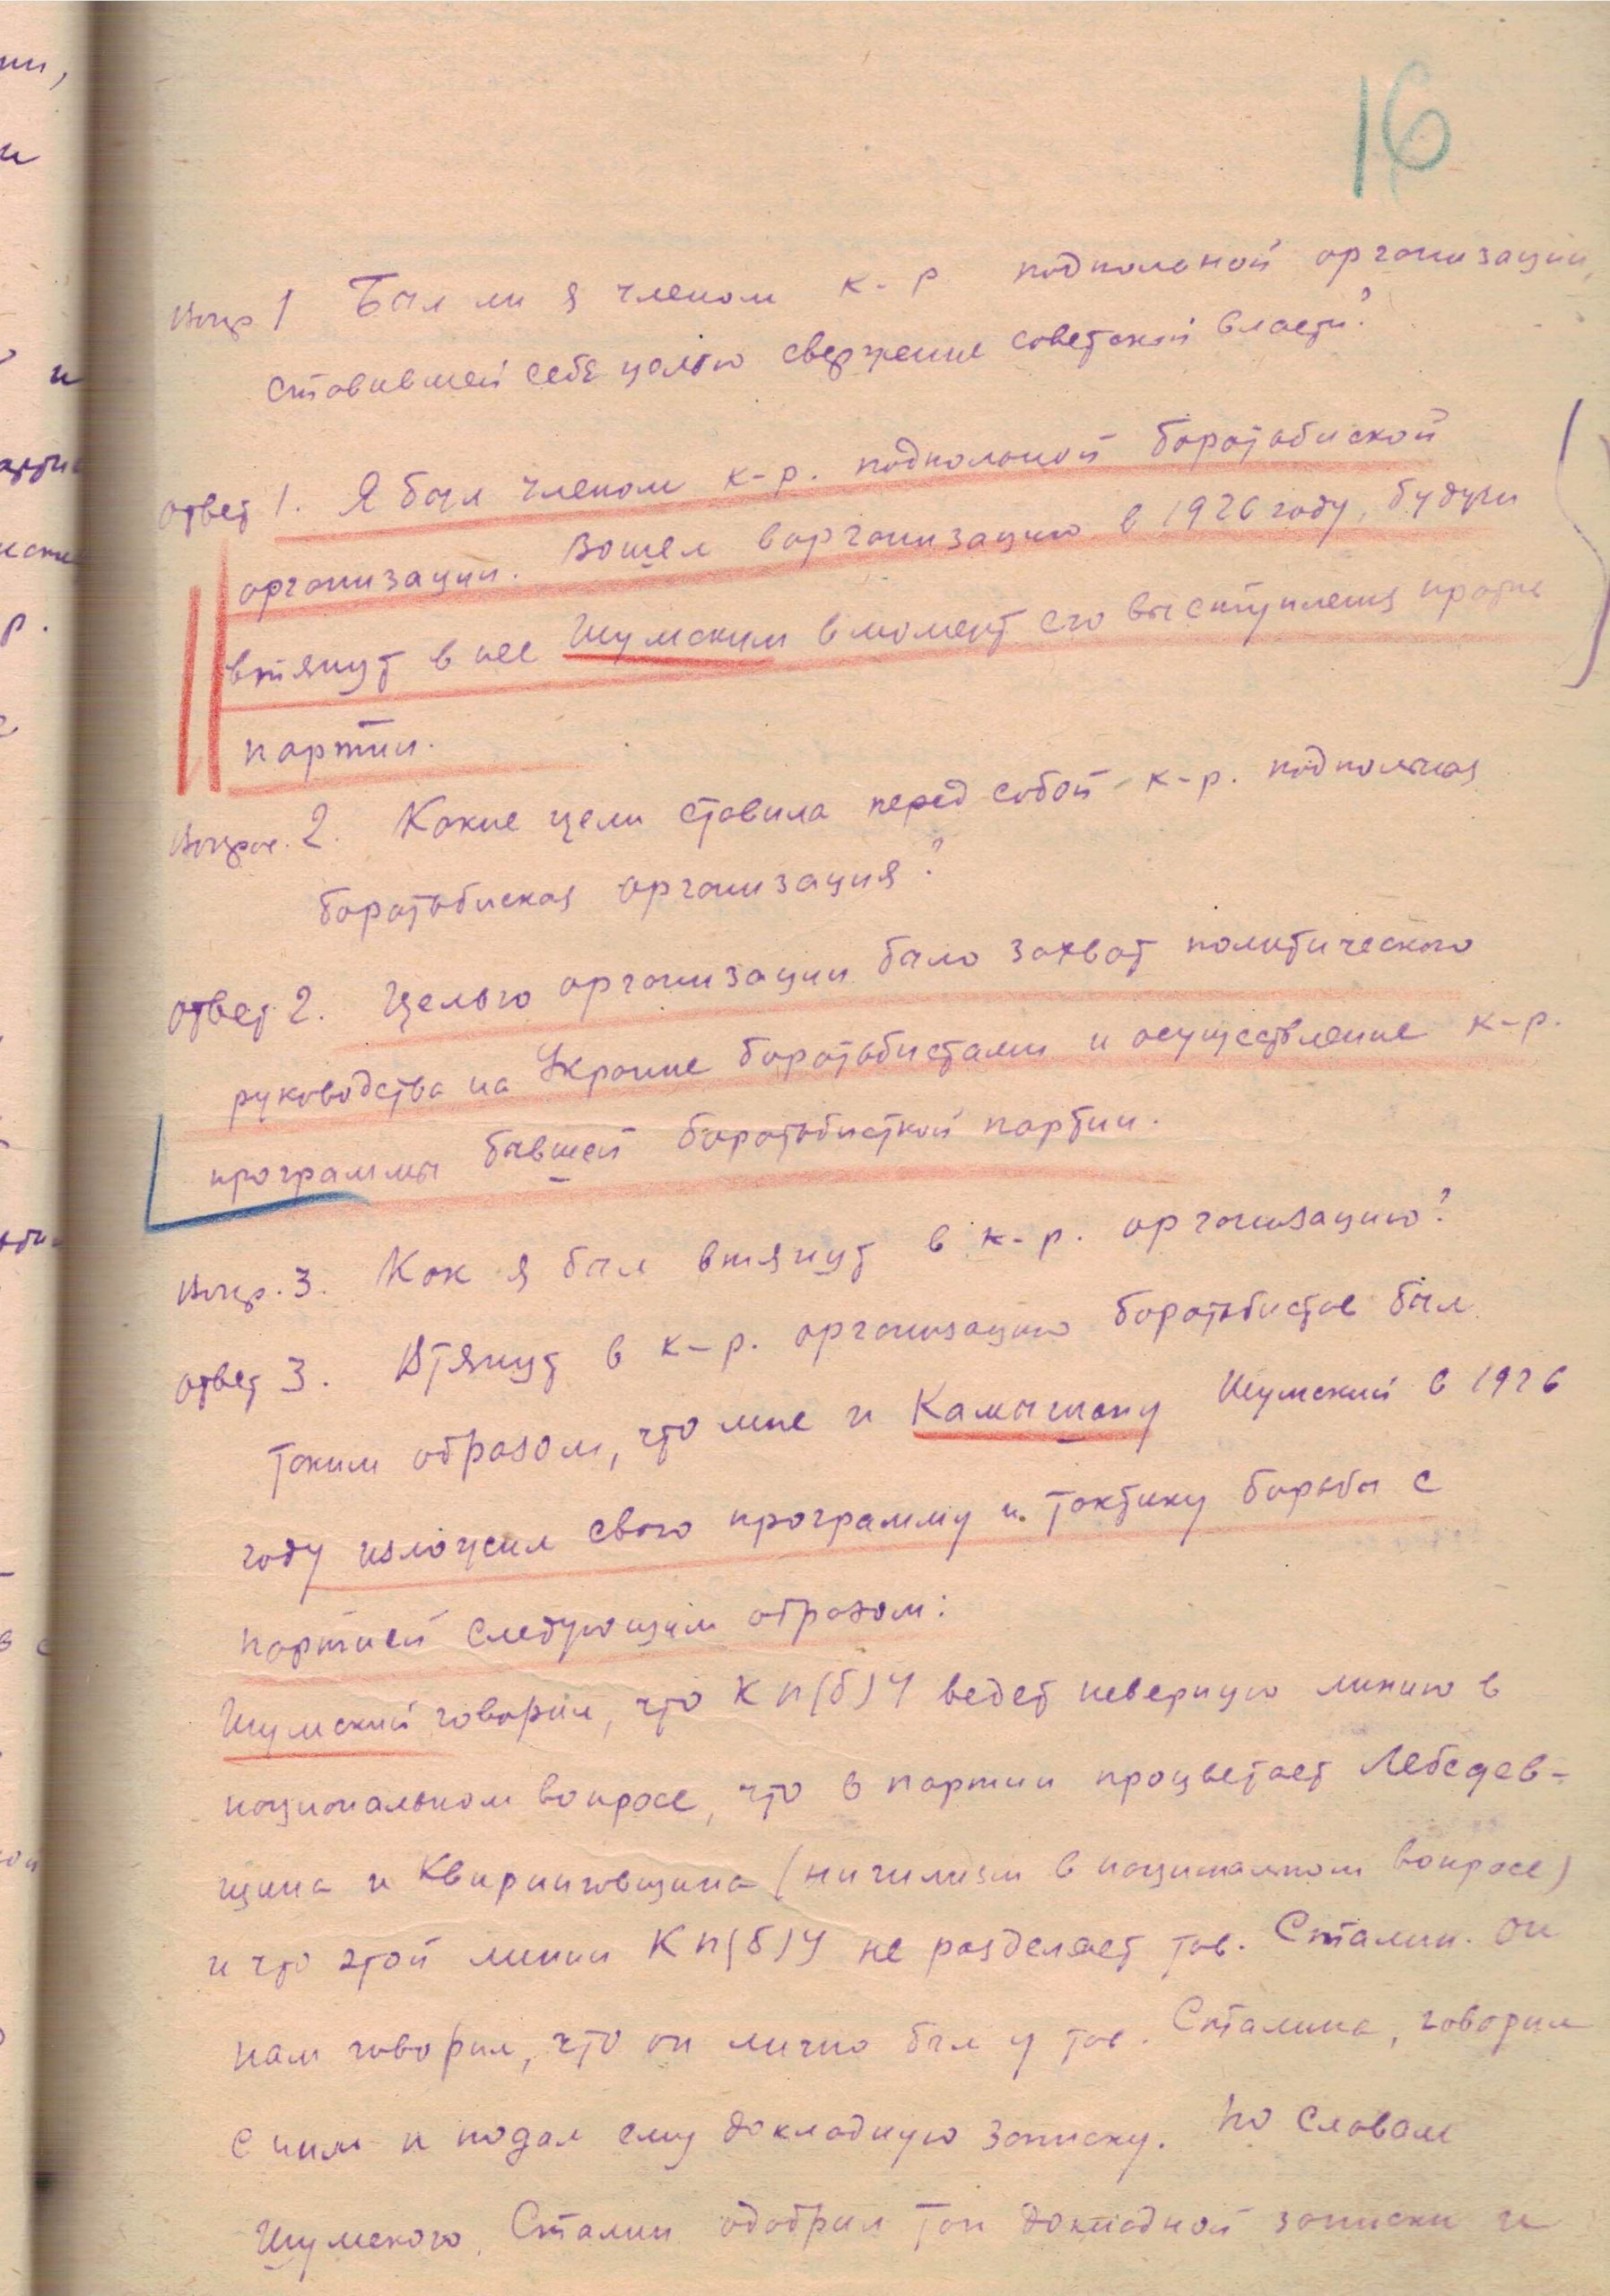 16
Вопр 1 Был ли я членом к-р подпольной организации,
ставившей себе целью свержение советской власти?
ответ 1. Я был членом к-р. подпольной боротьбиской
организации. Вошел в организацию в 1926 году, будучи
втянут в нее Шумским в момент его выступления против
партии.
Вопрос. 2. Какие цели ставила перед собой к-р. подпольная
боротьбиская организация?
ответ 2. Целью организации было захват политического
руководства на Украине боротьбистами и осуществление к-р.
программы бывшей боротьбисткой партии.
Вопр. 3. Как я был втянут в к-р. организацию?
ответ 3. Втянут в к-р. организацию боротьбистов был
таким образом, что мне и Камышану Шумский в 1926
году изложил свою программу и тактику борьбы с
партией следующим образом:
Шумский говорил, что КП(б)У ведет неверную линию в
национальном вопросе, что в партии процветает Лебедев-
щина и Квиринговщина (нигилизм в национальном вопросе)
и что этой линии КП(б)У не разделяет тов. Сталин. Он
нам говорил, что он лично был у тов. Сталина, говорил
с ним и подал ему докладную записку. По словам
Шумского, Сталин одобрил тон докладной записки и